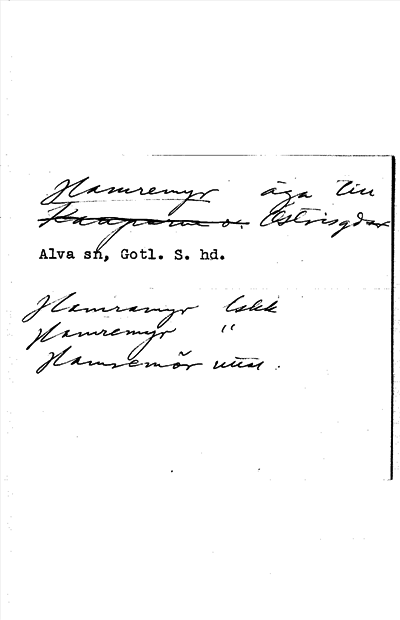 Hamremyr äga till
Kauparve o. Östrisgdar
Alva sn, Gotl. S. hd.
Hamramyr Lskk
Hamremyr "
Hamremör uttal.